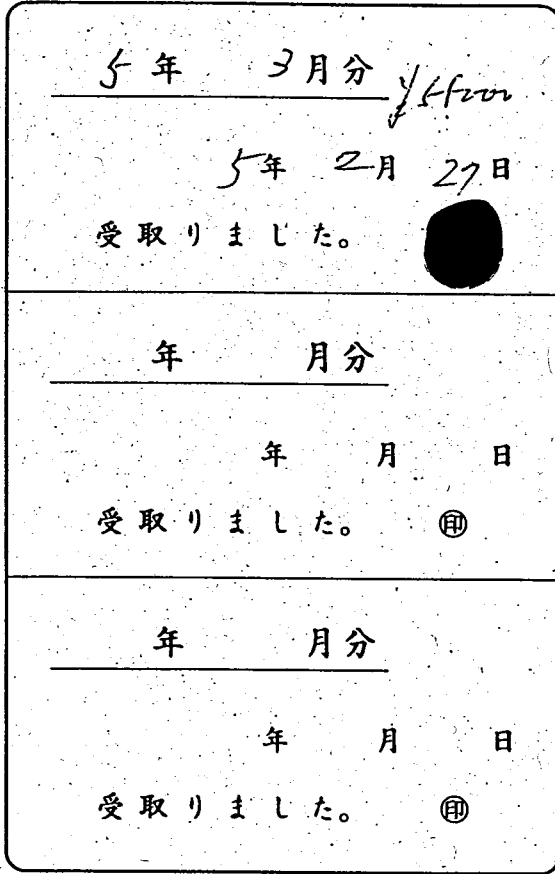 5年 3月分
5年 2月 27日
受取りました。
年 月分
年 月 日
受取りました。 ㊞
年 月分
年 月 日
受取りました。 ㊞